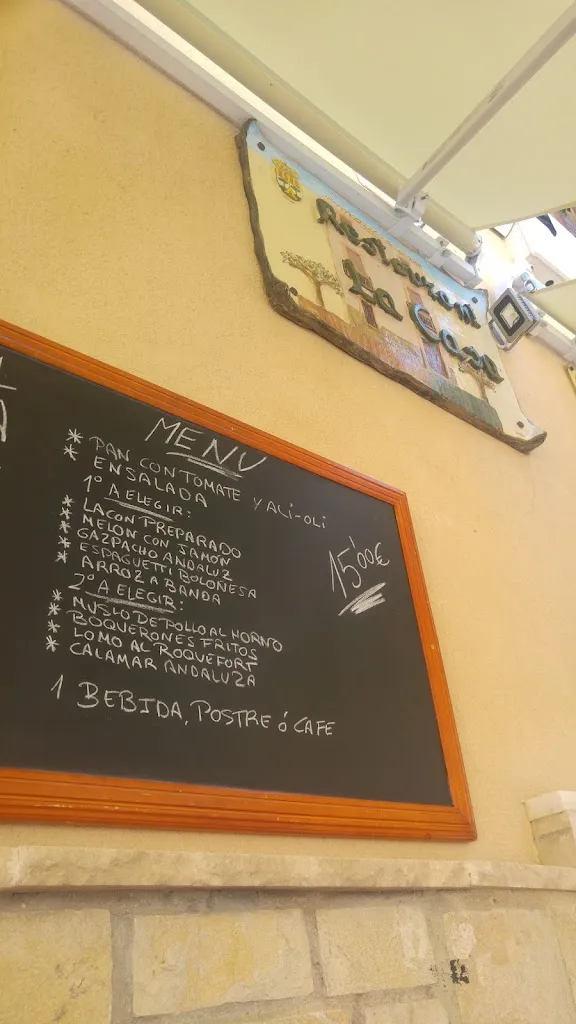 Restaurant
La Casa
MENU
* PAN CON TOMATE Y ALI-OLI
* ENSALADA
1º A ELEGIR:
* LACON PREPARADO
* MELON CON JAMÓN
* GAZPACHO ANDALUZ
* ESPAGUETTI BOLOÑESA
* ARROZ A BANDA
2º A ELEGIR:
* MUSLO DE POLLO AL HORNO
* BOQUERONES FRITOS
* LOMO AL ROQUEFORT
* CALAMAR ANDALUZA
1 BEBIDA, POSTRE ó CAFE
15'00€